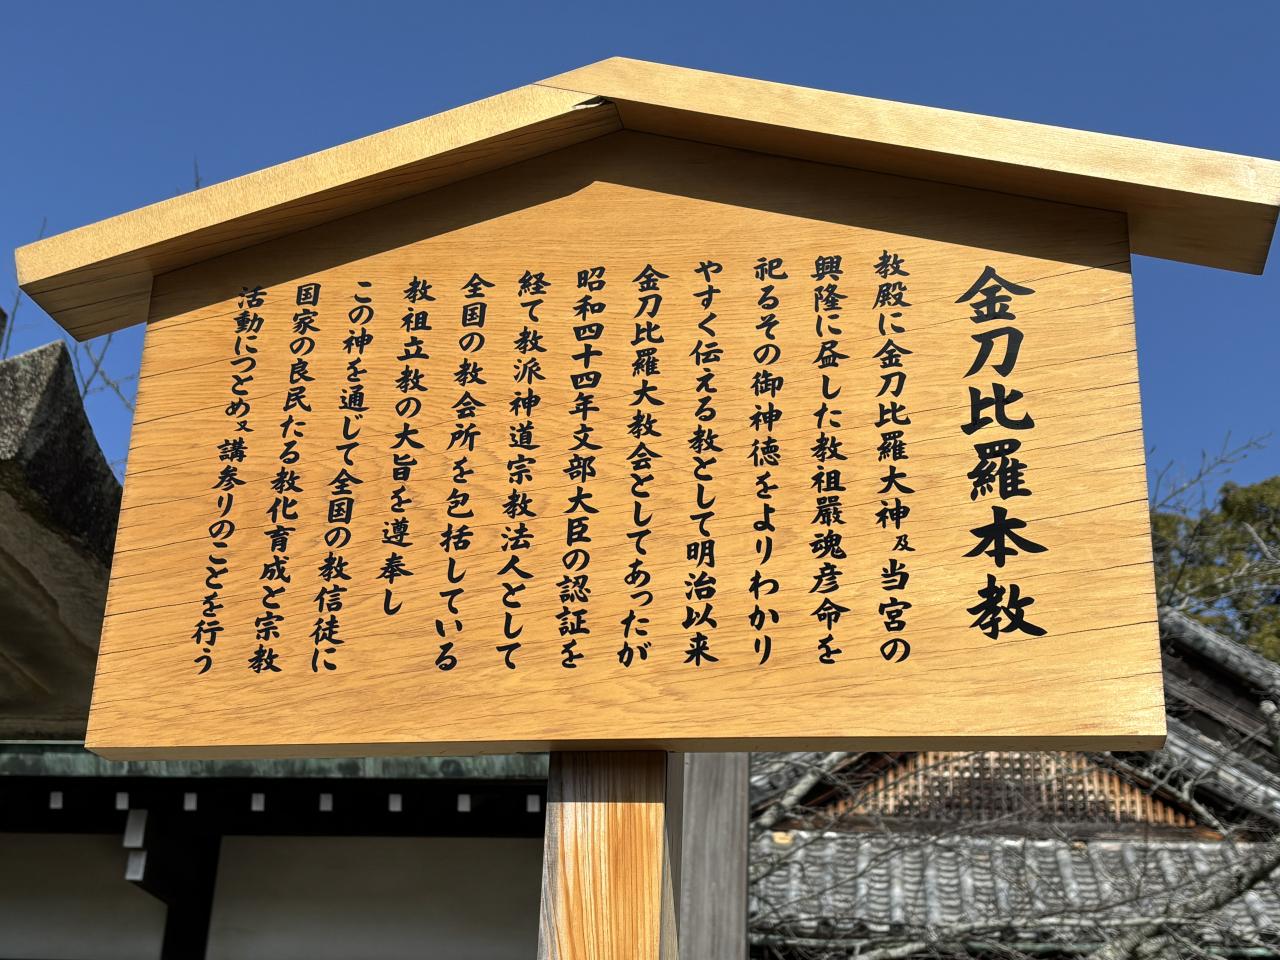 金刀比羅本教
教殿に金刀比羅大神及当宮の
興隆に昼した教祖嚴魂彦命を
祀るその御神徳をよりわかり
やすく伝える教として明治以来
金刀比羅大教会としてあったが
昭和四十四年文部大臣の認証を
経て教派神道宗教法人として
全国の教会所を包括している
教祖立教の大旨を遵奉し
この神を通じて全国の教信徒に
国家の良民たる教化育成と宗教
活動につとめ又講参りのことを行う